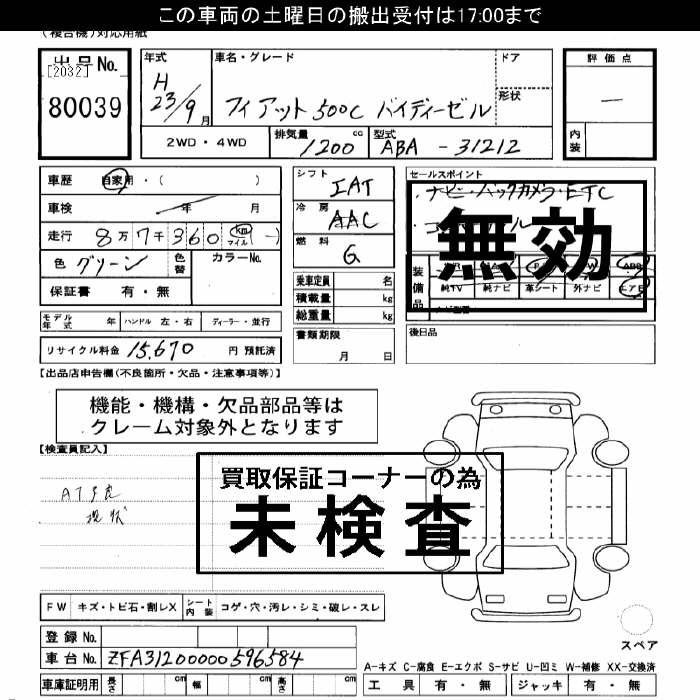 この車両の土曜日の搬出受付は17:00まで
(複合機)対応用紙
出品No.
[2032]
80039
年式
H
23/9月
車名・グレード
フィアット500C バイディーゼル
ドア
形状
2WD・4WD
排気量 1200 cc
型式 ABA - 31212
評価点
―
内装
車歴 自家用・( )
車検 年 月
走行 8万7千360 km マイル (―)
色 グリーン 色替 カラーNo.
保証書 有・無
シフト IAT
冷房 AAC
燃料 G
乗車定員 名
積載量 kg
総重量 kg
書類期限
月 日
セールスポイント
・ナビ・バックカメラ・ETC
無効
装備品
ABS
純TV 純ナビ 革シート 外ナビ エアB
後日品
モデル年式 年 ハンドル 左・右 ディーラー・並行
リサイクル料金 15,670 円 預託済
【出品店申告欄(不良箇所・欠品・注意事項等)】
機能・機構・欠品部品等は
クレーム対象外となります
【検査員記入】
AT不良
現状
買取保証コーナーの為
未検査
FW キズ・トビ石・割レX シート内装 コゲ・穴・汚レ・シミ・破レ・スレ
登録No.
車台No. ZFA31200000596584
車庫証明用 長さ cm 幅 cm 高さ cm
スペア
A-キズ C-腐食 E-エクボ S-サビ U-凹ミ W-補修 XX-交換済
工具 有・無 ジャッキ 有・無